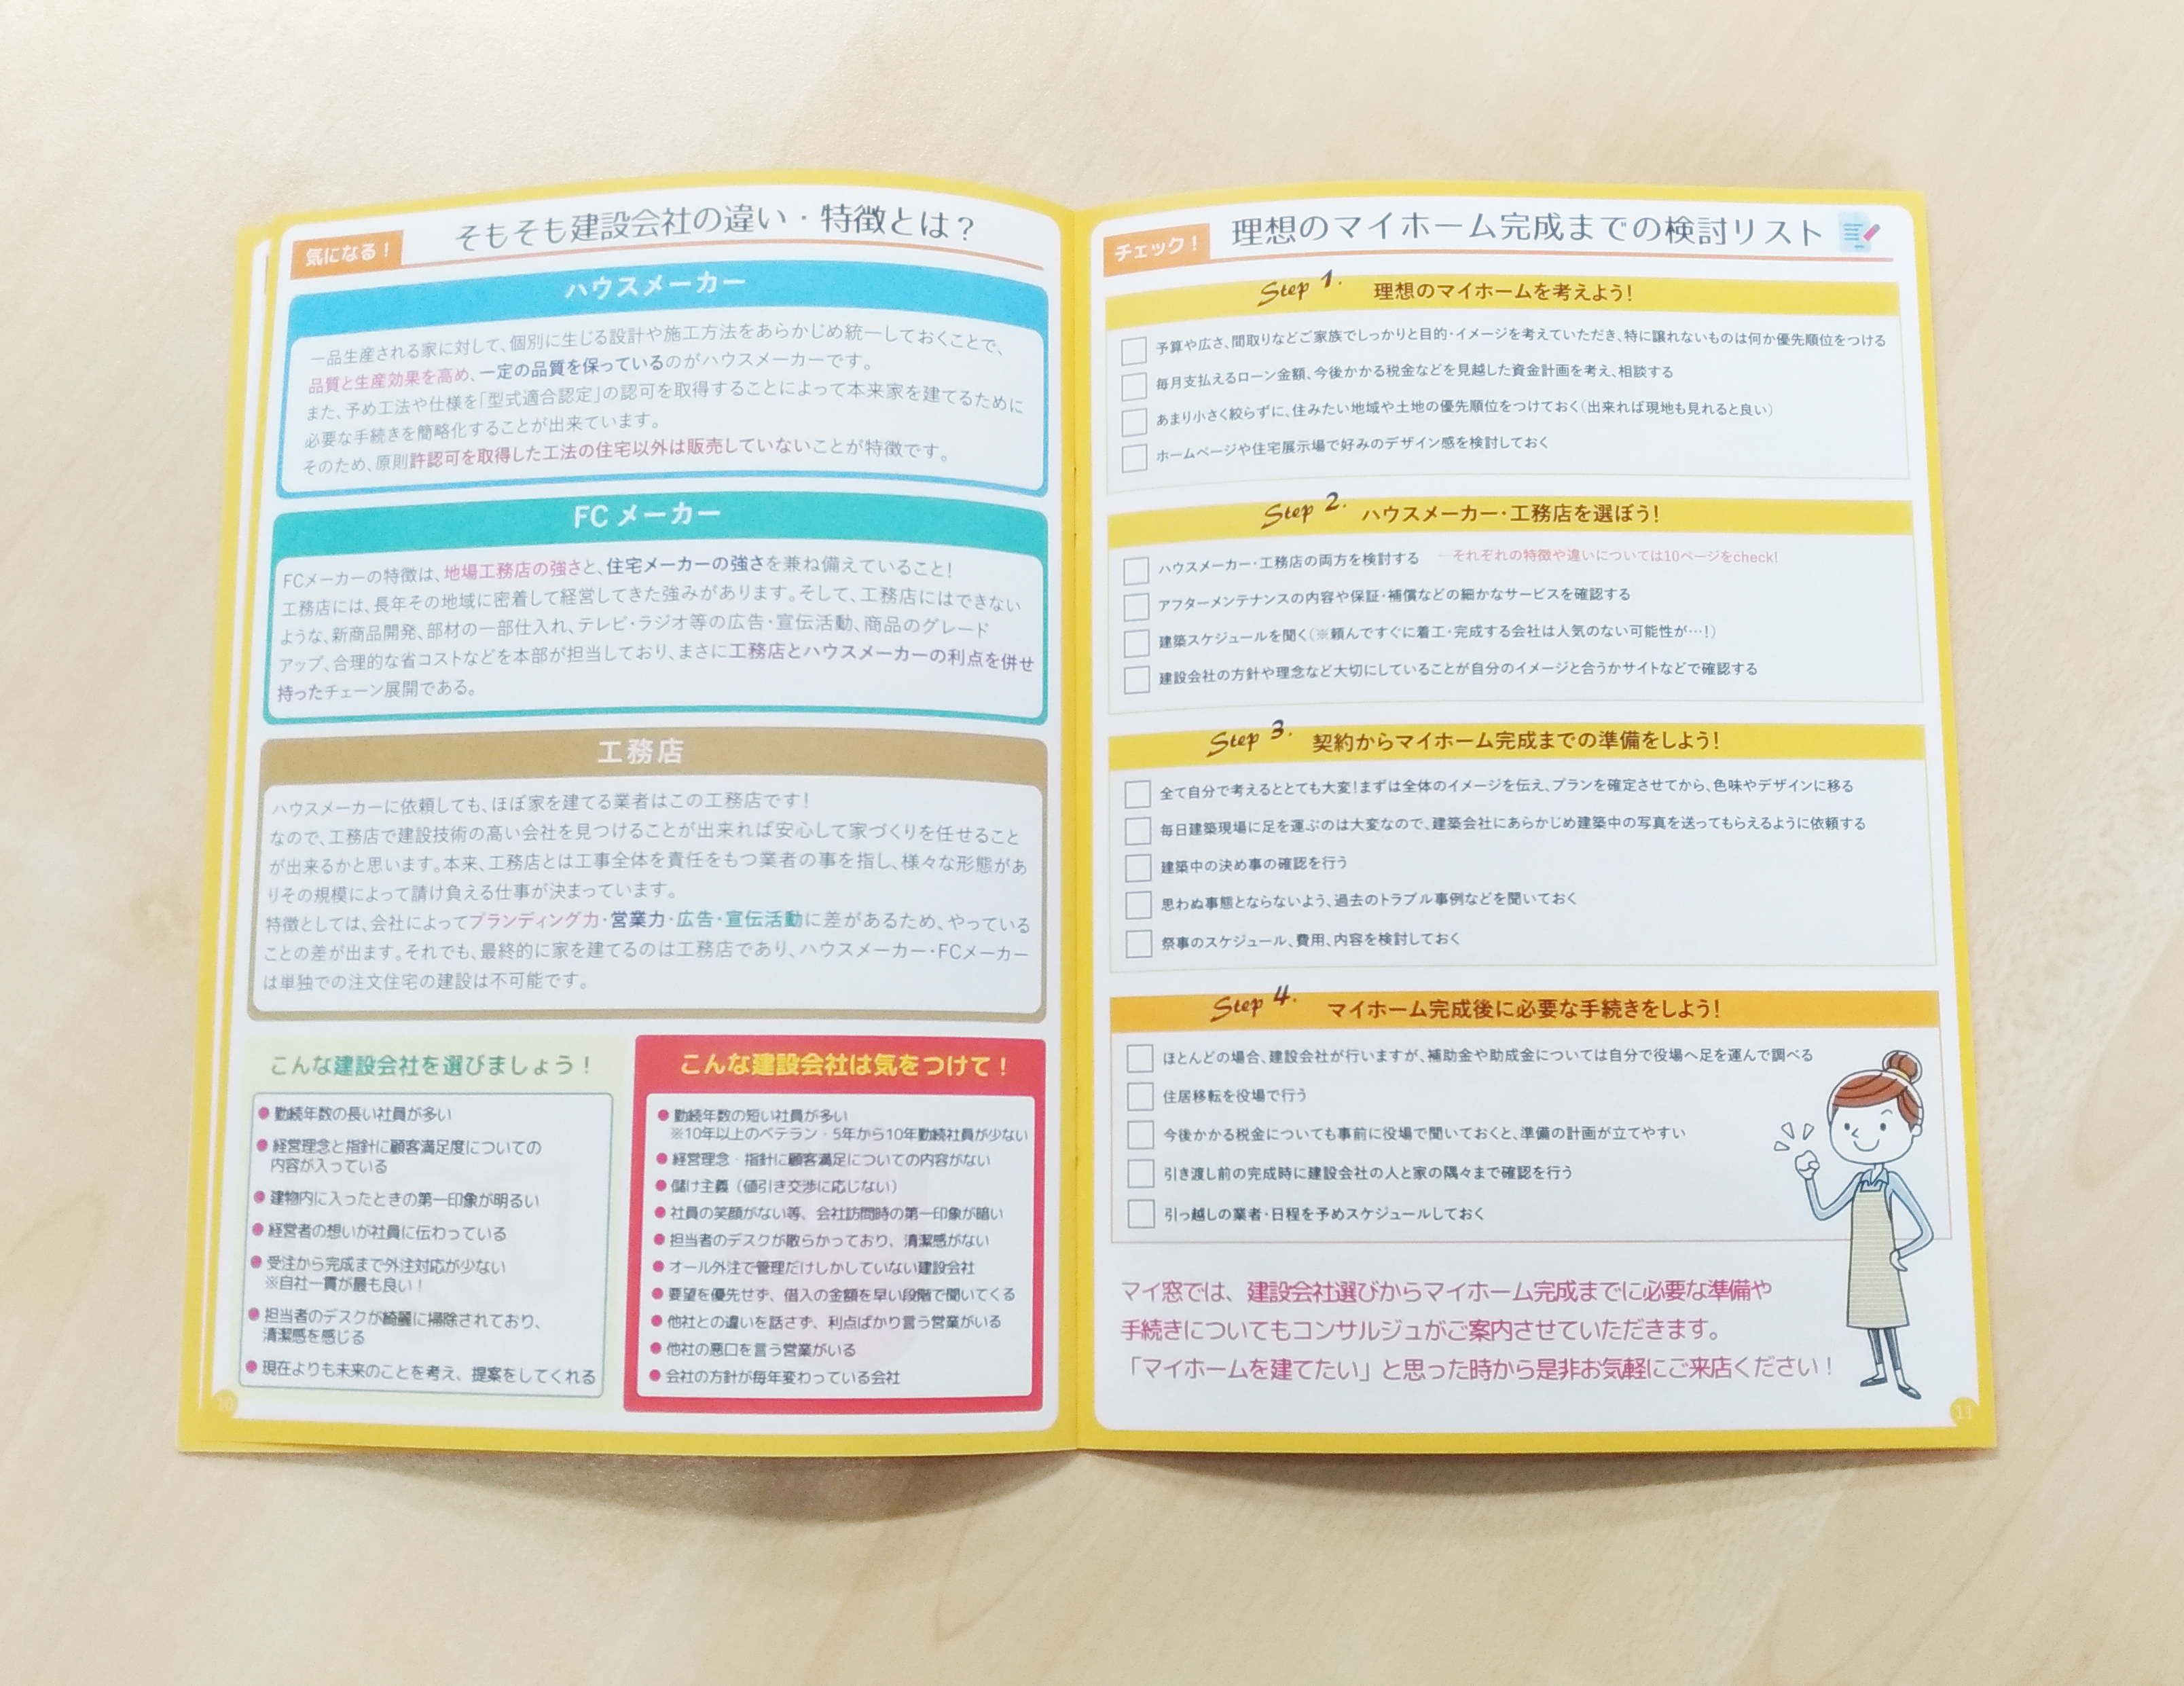 気になる！
そもそも建設会社の違い・特徴とは？
ハウスメーカー
一品生産される家に対して、個別に生じる設計や施工方法をあらかじめ統一しておくことで、
品質と生産効果を高め、一定の品質を保っているのがハウスメーカーです。
また、予め工法や仕様を「型式適合認定」の認可を取得することによって本来家を建てるために
必要な手続きを簡略化することが出来ています。
そのため、原則許認可を取得した工法の住宅以外は販売していないことが特徴です。
FCメーカー
FCメーカーの特徴は、地場工務店の強さと、住宅メーカーの強さを兼ね備えていること！
工務店には、長年その地域に密着して経営してきた強みがあります。そして、工務店にはできない
ような、新商品開発、部材の一部仕入れ、テレビ・ラジオ等の広告・宣伝活動、商品のグレード
アップ、合理的な省コストなどを本部が担当しており、まさに工務店とハウスメーカーの利点を併せ
持ったチェーン展開である。
工務店
ハウスメーカーに依頼しても、ほぼ家を建てる業者はこの工務店です！
なので、工務店で建設技術の高い会社を見つけることが出来れば安心して家づくりを任せること
が出来るかと思います。本来、工務店とは工事全体を責任をもつ業者の事を指し、様々な形態があ
りその規模によって請け負える仕事が決まっています。
特徴としては、会社によってブランディング力・営業力・広告・宣伝活動に差があるため、やっている
ことの差が出ます。それでも、最終的に家を建てるのは工務店であり、ハウスメーカー・FCメーカー
は単独での注文住宅の建設は不可能です。
こんな建設会社を選びましょう！
●勤続年数の長い社員が多い
●経営理念と指針に顧客満足度についての
内容が入っている
●建物内に入ったときの第一印象が明るい
●経営者の想いが社員に伝わっている
●受注から完成まで外注対応が少ない
※自社一貫が最も良い！
●担当者のデスクが綺麗に掃除されており、
清潔感を感じる
●現在よりも未来のことを考え、提案をしてくれる
こんな建設会社は気をつけて！
●勤続年数の短い社員が多い
※10年以上のベテラン・5年から10年勤続社員が少ない
●経営理念・指針に顧客満足についての内容がない
●儲け主義（値引き交渉に応じない）
●社員の笑顔がない等、会社訪問時の第一印象が暗い
●担当者のデスクが散らかっており、清潔感がない
●オール外注で管理だけしかしていない建設会社
●要望を優先せず、借入の金額を早い段階で聞いてくる
●他社との違いを話さず、利点ばかり言う営業がいる
●他社の悪口を言う営業がいる
●会社の方針が毎年変わっている会社
10
チェック！
理想のマイホーム完成までの検討リスト
Step 1. 理想のマイホームを考えよう！
予算や広さ、間取りなどご家族でしっかりと目的・イメージを考えていただき、特に譲れないものは何か優先順位をつける
毎月支払えるローン金額、今後かかる税金などを見越した資金計画を考え、相談する
あまり小さく絞らずに、住みたい地域や土地の優先順位をつけておく（出来れば現地も見れると良い）
ホームページや住宅展示場で好みのデザイン感を検討しておく
Step 2. ハウスメーカー・工務店を選ぼう！
ハウスメーカー・工務店の両方を検討する ←それぞれの特徴や違いについては10ページをcheck！
アフターメンテナンスの内容や保証・補償などの細かなサービスを確認する
建築スケジュールを聞く（※頼んですぐに着工・完成する会社は人気のない可能性が…！）
建設会社の方針や理念など大切にしていることが自分のイメージと合うかサイトなどで確認する
Step 3. 契約からマイホーム完成までの準備をしよう！
全て自分で考えるととても大変！まずは全体のイメージを伝え、プランを確定させてから、色味やデザインに移る
毎日建築現場に足を運ぶのは大変なので、建築会社にあらかじめ建築中の写真を送ってもらえるように依頼する
建築中の決め事の確認を行う
思わぬ事態とならないよう、過去のトラブル事例などを聞いておく
祭事のスケジュール、費用、内容を検討しておく
Step 4. マイホーム完成後に必要な手続きをしよう！
ほとんどの場合、建設会社が行いますが、補助金や助成金については自分で役場へ足を運んで調べる
住居移転を役場で行う
今後かかる税金についても事前に役場で聞いておくと、準備の計画が立てやすい
引き渡し前の完成時に建設会社の人と家の隅々まで確認を行う
引っ越しの業者・日程を予めスケジュールしておく
マイ窓では、建設会社選びからマイホーム完成までに必要な準備や
手続きについてもコンサルジュがご案内させていただきます。
「マイホームを建てたい」と思った時から是非お気軽にご来店ください！
11